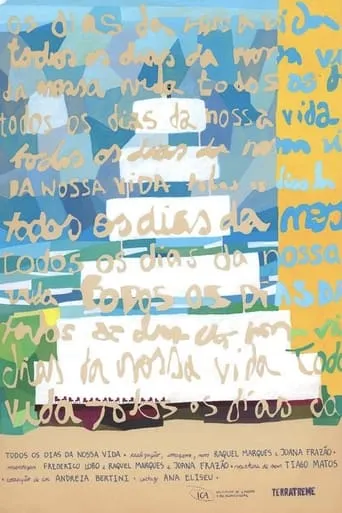 os dias da nossa vida
todos os dias da nossa vi
da nossa vida todos os di
todos os dias da nossa vida
todos os dias da nossa vi
DA NOSSA VIDA todos os dias da
todos os dias da nos
todos os dias da nossa
vida TODOS OS DIAS DA
dias da nossa vida todo
vida todos os dias da
TODOS OS DIAS DA NOSSA VIDA • realização, imagem, som RAQUEL MARQUES & JOANA FRAZÃO •
montagem FREDERICO LOBO & RAQUEL MARQUES & JOANA FRAZÃO • mistura de som TIAGO MATOS
• correção de cor ANDREIA BERTINI • cartaz ANA ELISEU •
ICA
TERRATREME